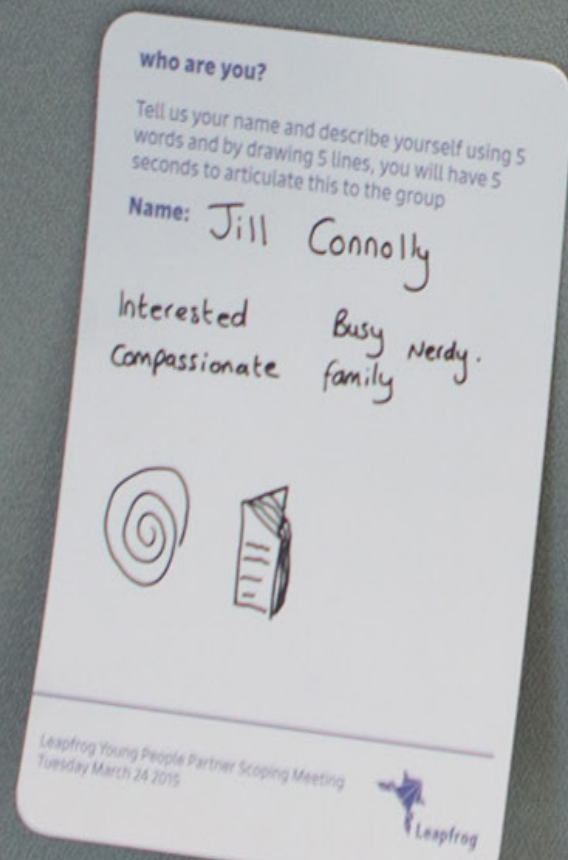 who are you?
Tell us your name and describe yourself using 5
words and by drawing 5 lines, you will have 5
seconds to articulate this to the group
Name: Jill Connolly
Interested Busy Nerdy.
Compassionate family
Leapfrog Young People Partner Scoping Meeting
Tuesday March 24 2015
Leapfrog